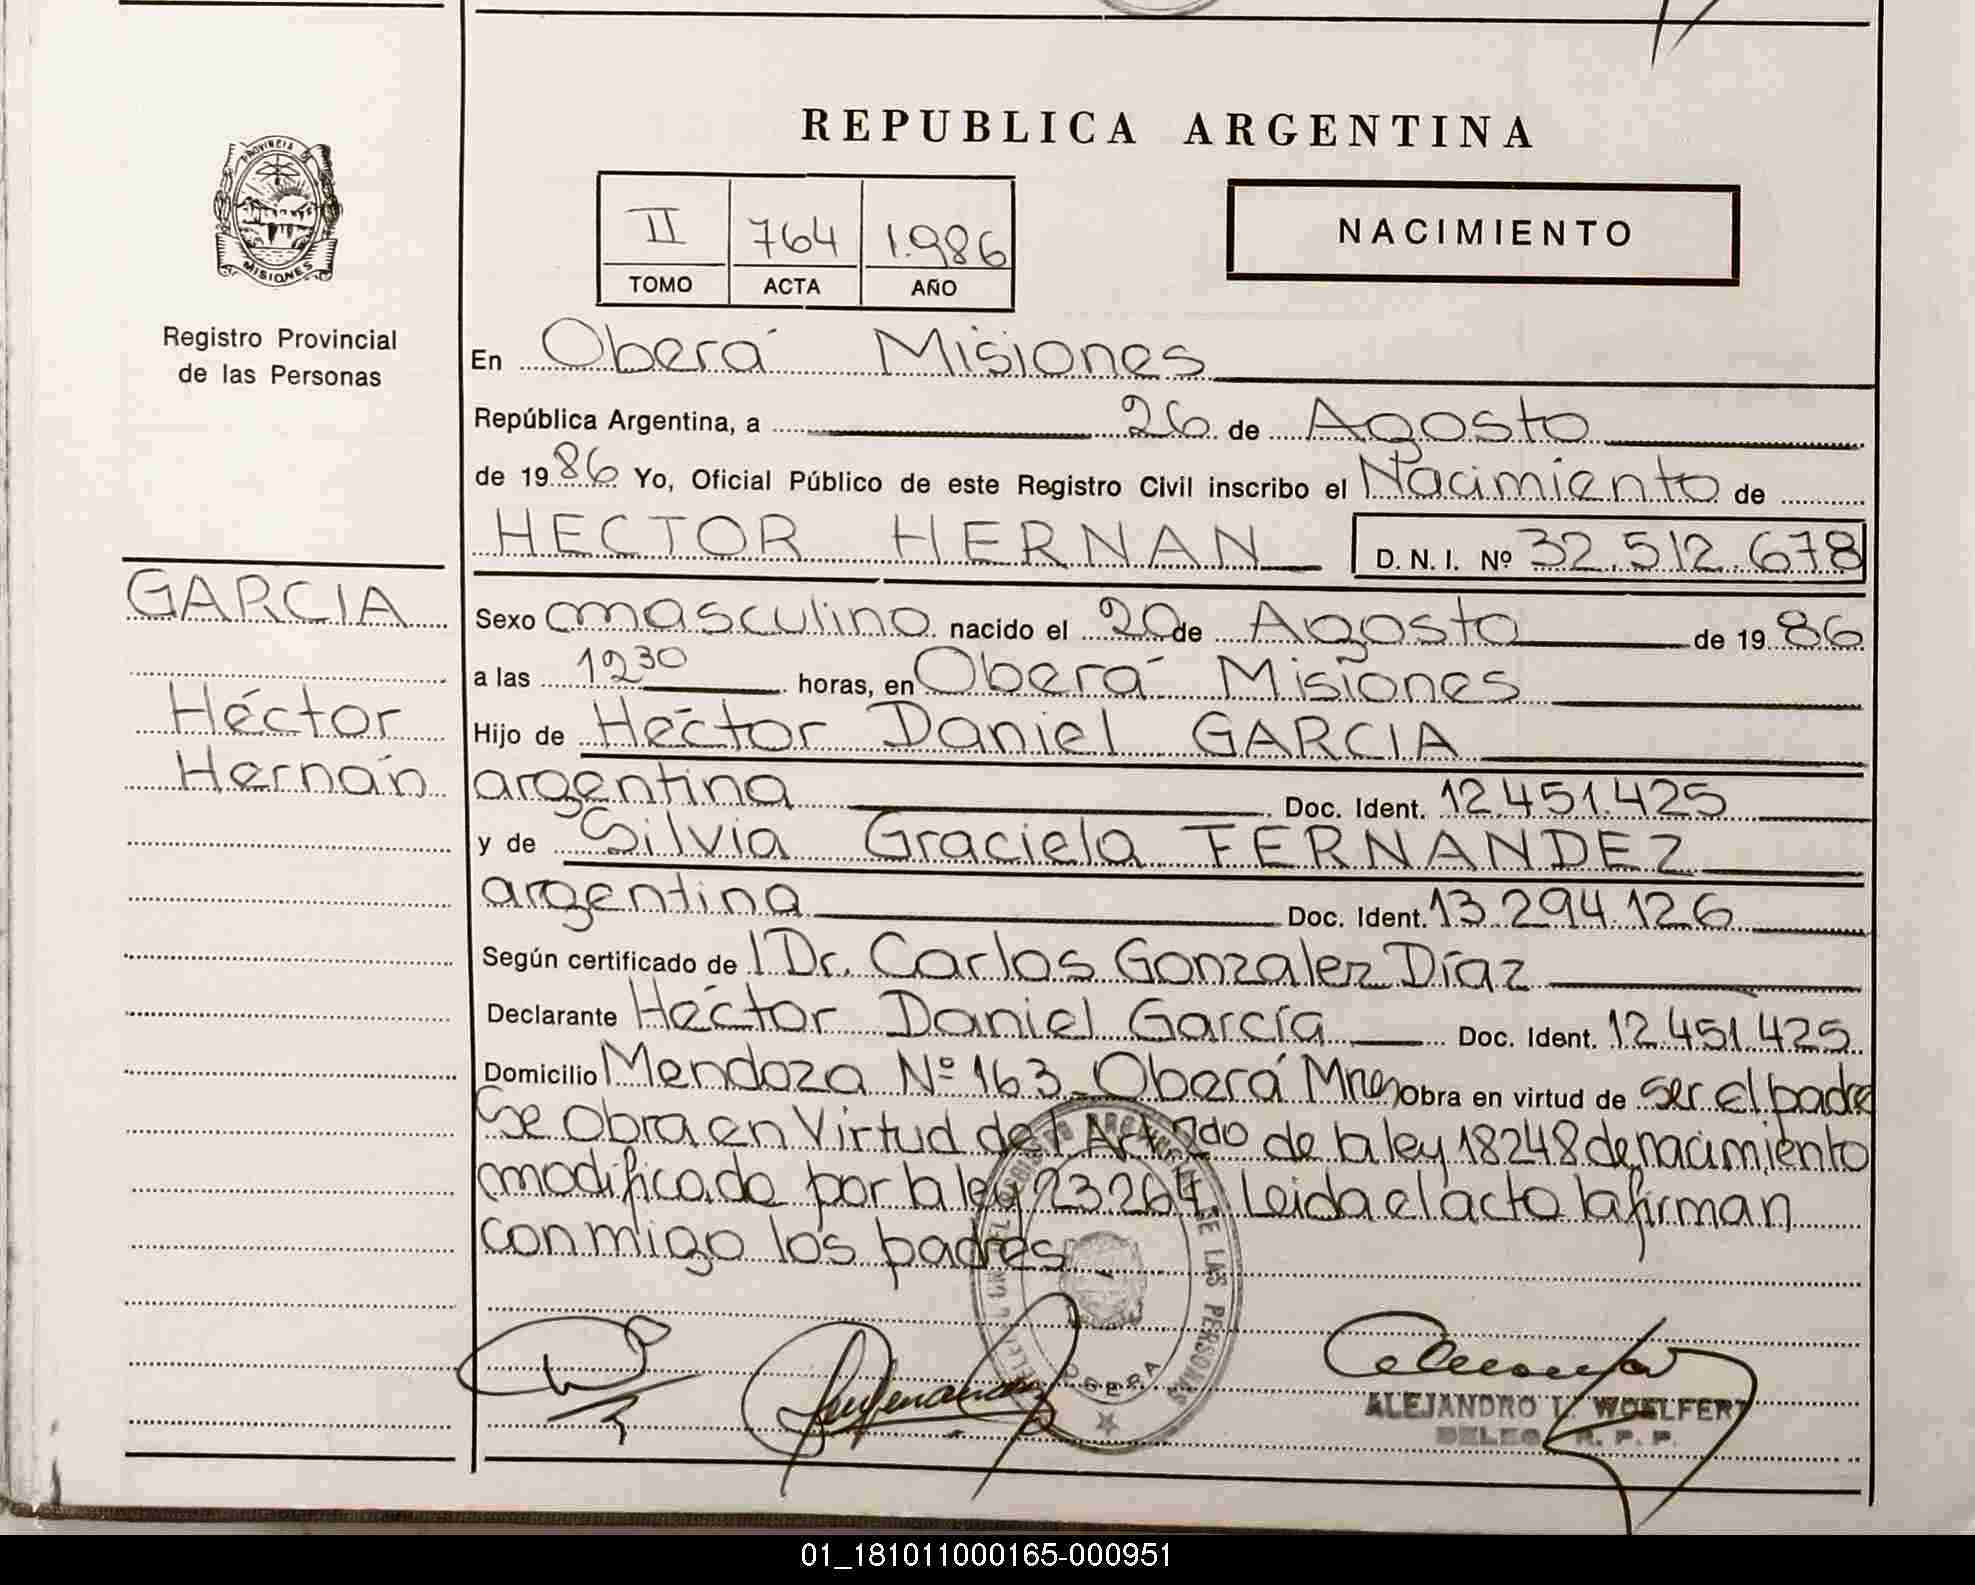 REPUBLICA ARGENTINA
PROVINCIA DE
MISIONES
II 764 1.986
TOMO ACTA AÑO
NACIMIENTO
Registro Provincial
de las Personas
En Oberá Misiones
República Argentina, a 26 de Agosto
de 1986 Yo, Oficial Público de este Registro Civil inscribo el Nacimiento de
HECTOR HERNAN D. N. I. Nº 32.512.678
GARCIA
Héctor
Hernán
Sexo masculino nacido el 20 de Agosto de 1986
a las 12 30 horas, en Oberá Misiones
Hijo de Héctor Daniel GARCIA
argentina Doc. Ident. 12.451.425
y de Silvia Graciela FERNANDEZ
argentina Doc. Ident. 13.294.126
Según certificado de l Dr. Carlos Gonzalez Díaz
Declarante Héctor Daniel García Doc. Ident. 12.451.425
Domicilio Mendoza Nº 163 - Oberá Mnes Obra en virtud de ser el padre
Se Obra en Virtud del Art. 2do de la ley 18248 de nacimiento
modificado por la ley 23.264, Leida el acto la firman
conmigo los padres
DE LAS PERSONAS
OBERA
ALEJANDRO L. WOELFERT
DELEG. R. P. P.
01_181011000165-000951